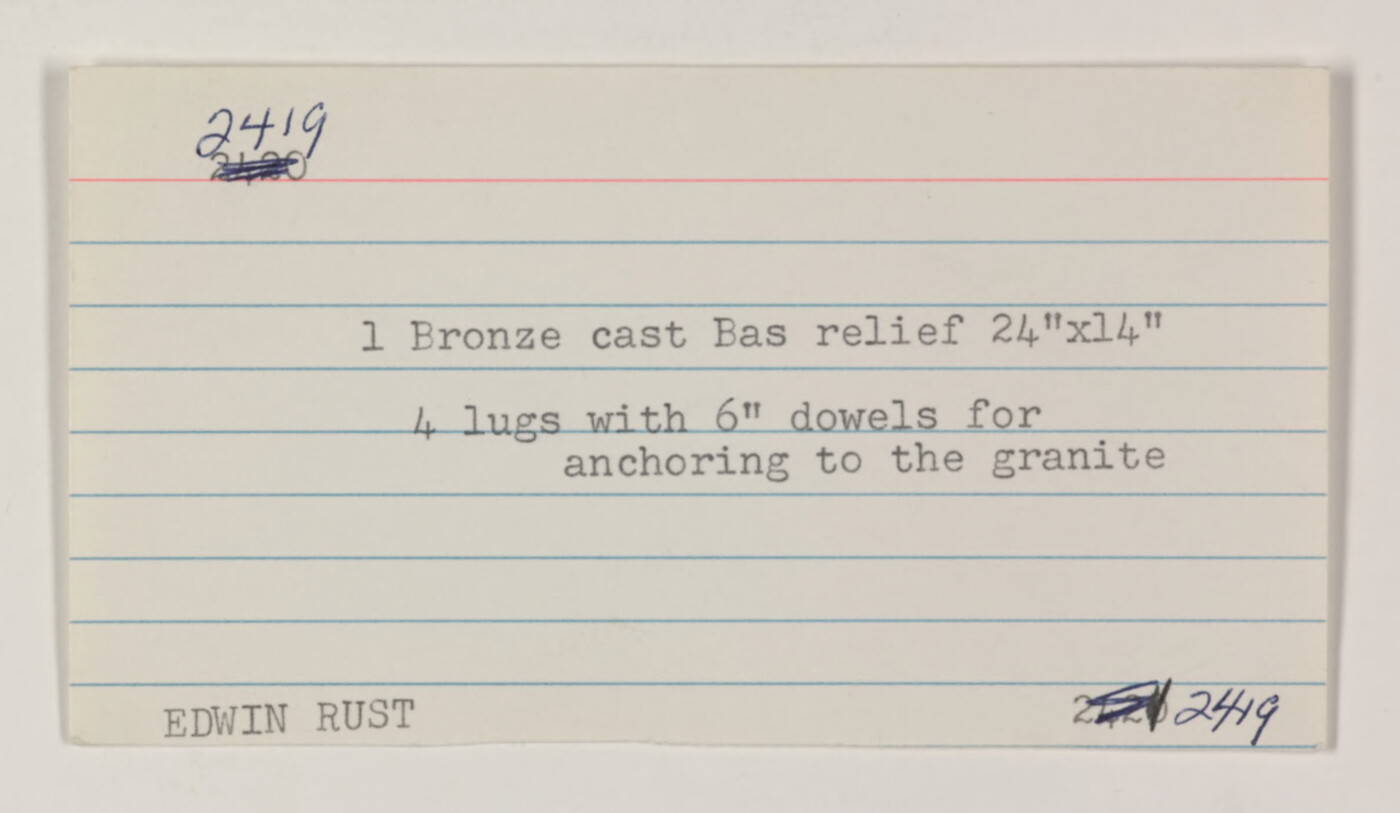 2419
2420
1 Bronze cast Bas relief 24"x14"
4 lugs with 6" dowels for
anchoring to the granite
EDWIN RUST
2420 2419